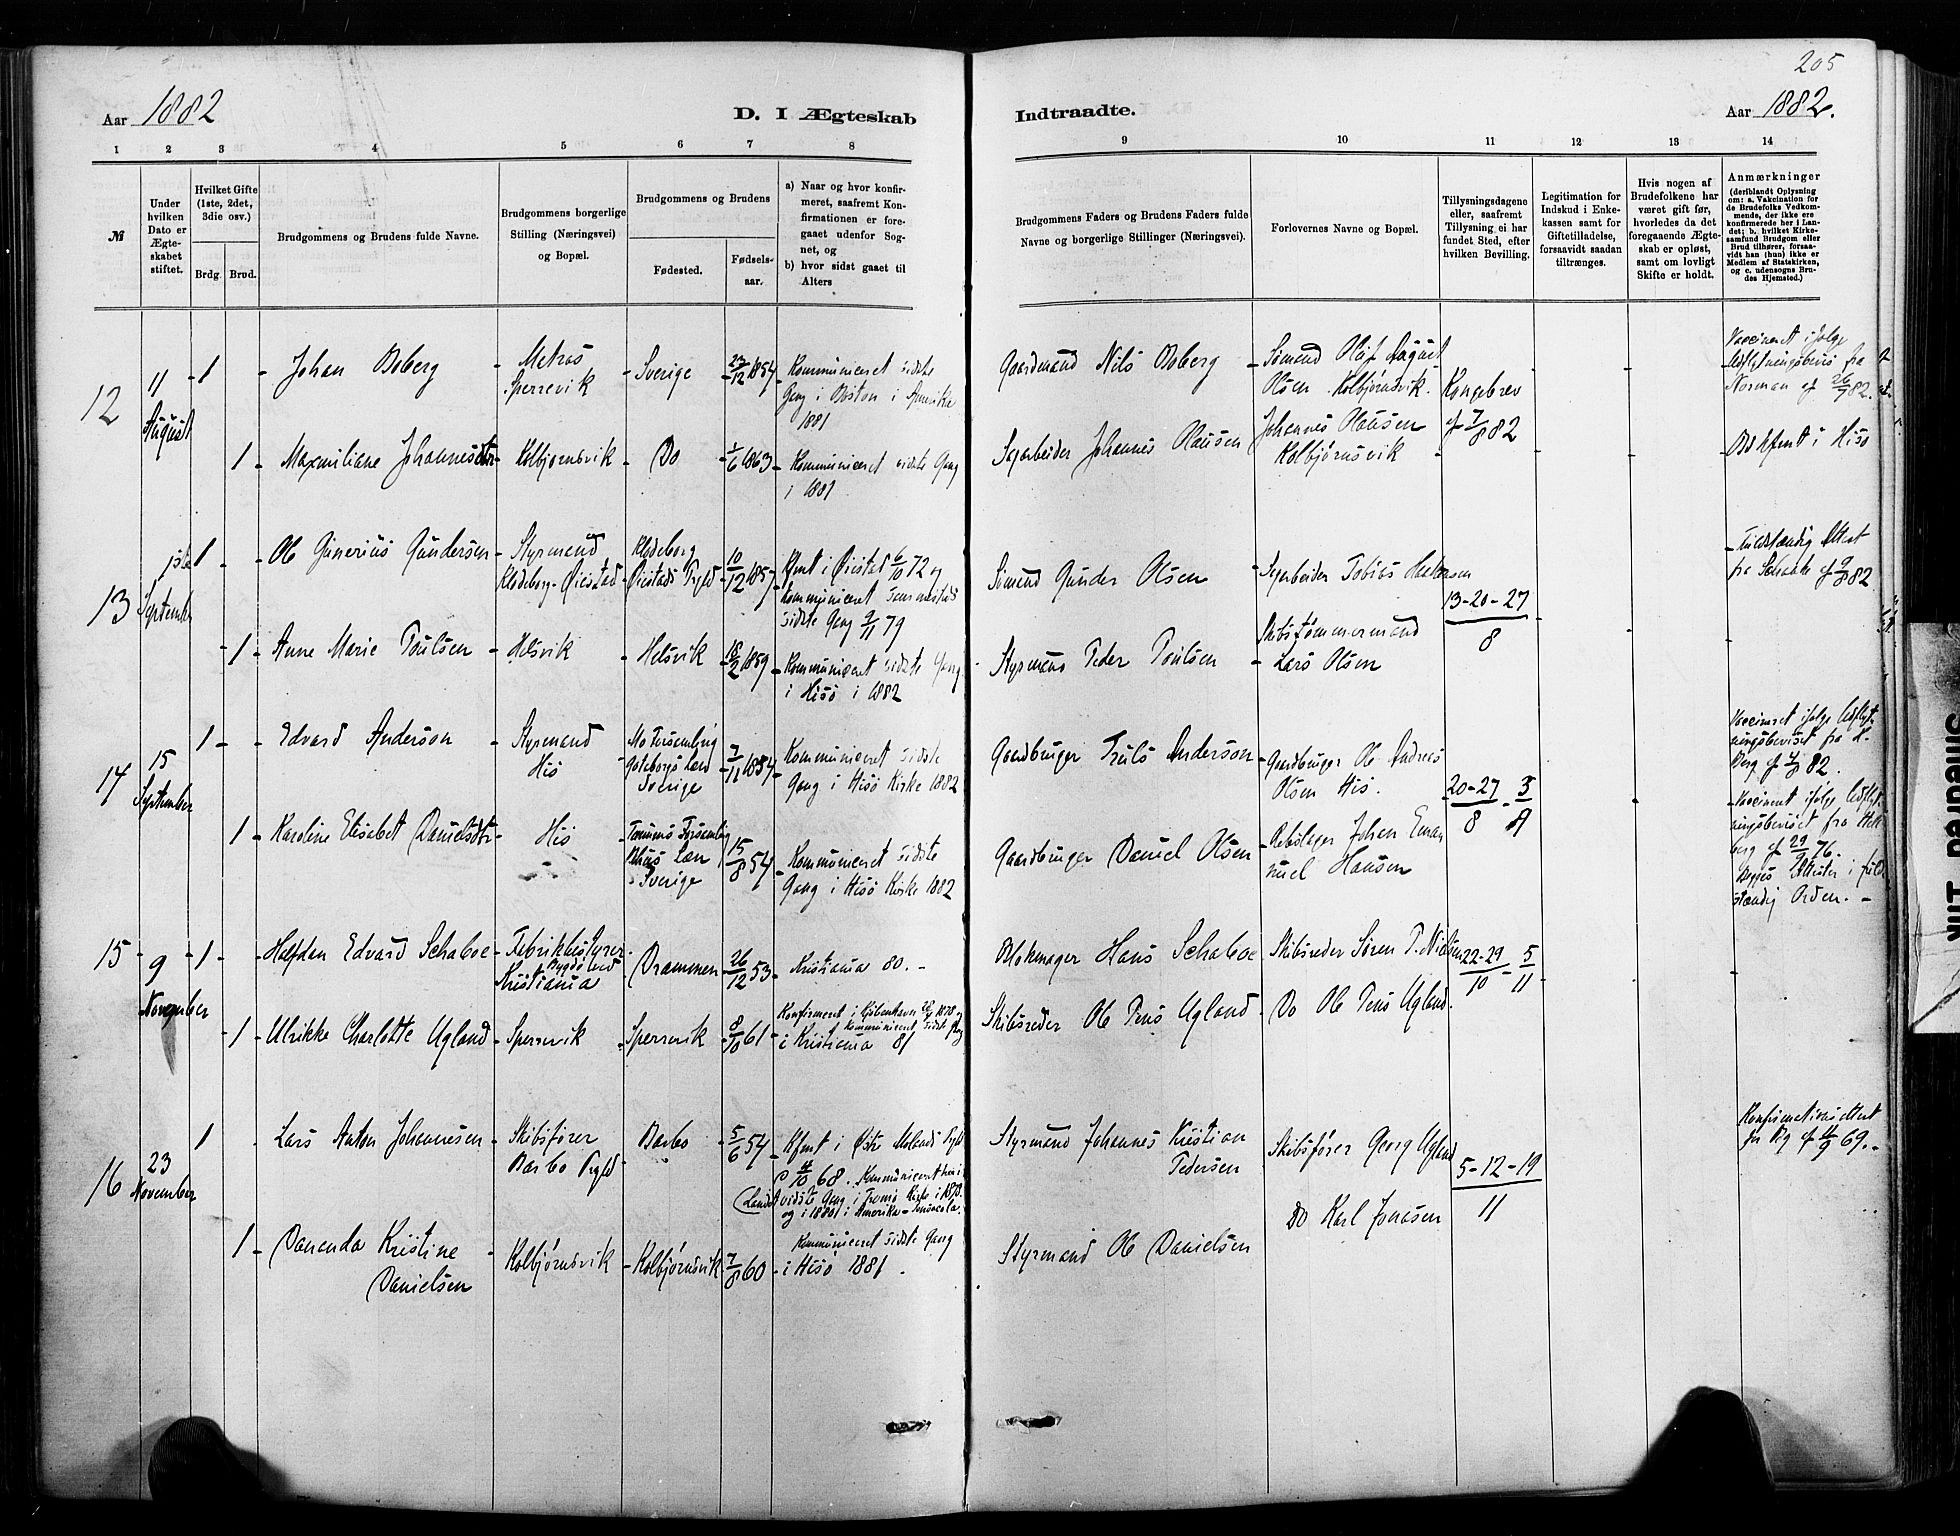 205
Aar 1882
D. I Ægteskab
Indtraadte.
Aar 1882.
1 2 3 4 5 6 7 8
9 10 11 12 13 14
№
Under hvilken Dato er Ægteskabet stiftet.
Hvilket Gifte (1ste, 2det, 3die osv.)
Brdg. Brud.
Brudgommens og Brudens fulde Navne.
Brudgommens borgerlige Stilling (Næringsvei) og Bopæl.
Brudgommens og Brudens
Fødested.
Fødselsaar.
a) Naar og hvor konfirmeret, saafremt Konfirmationen er foregaaet udenfor Sognet, og
b) hvor sidst gaaet til Alters
Brudgommens Faders og Brudens Faders fulde Navne og borgerlige Stillinger (Næringsvei).
Forlovernes Navne og Bopæl.
Tillysningsdagene eller, saafremt Tillysning ei har fundet Sted, efter hvilken Bevilling.
Legitimation for Indskud i Enkekassen samt for Giftetilladelse, forsaavidt saadan tiltrænges.
Hvis nogen af Brudefolkene har været gift før, hvorledes da det foregaaende Ægteskab er opløst, samt om lovligt Skifte er holdt.
Anmærkninger
(deriblandt Oplysning om: a. Vakcination for de Brudefolks Vedkommende, der ikke ere konfirmerede her i Landet; b. hvilket Kirkesamfund Brudgom eller Brud tilhører, forsaavidt han (hun) ikke er Medlem af Statskirken, og c. udensogns Brudes Hjemsted.)
12
11 August
1 - Johan Boberg - Matros Sperrevik - Sverige - 23/12 1854 - Kommuniceret sidste Gang i Boston i Amerika 1881
Gaardmand Nils Boberg
Sømand Olaf August Olsen Kolbjørnsvik.
Kongebrev af 7/8 82
Vaccineret ifølge Udflytningsbevis fra Norman af 26/7 82.
1 - Maxmiliane Johannesdtr - Kolbjørnsvik - Do - 1/6 1863 - Kommuniceret sidste Gang i 1881
Sagarbeider Johannes Hansen
Johannes Hansen Kolbjørnsvik
i Hisø
13
1ste September
1 - Ole Gunerius Gundersen - Styrmand Klodeborg - Øiestad - Klodeborg Øiestads Prgld - 10/12 1857 - Kfmt i Øiestad 6/10 72 og kommuniceret sidste Gang 9/11 79
Sømand Gunder Olsen
Sagarbeider Tobias
13-20-27/8
Fuldstændig Attest fra Schanke af 9/8 82
1 - Anne Marie Poulsen - Helsvik - Helsvik - 18/2 1859 - Kommuniceret sidste Gang i Hisø i 1882
Styrmand Peder Poulsen
Skibstømmermand Lars Olsen
14
15 September
1 - Edvard Anderson - Styrmand His - Mo Forsamling Gøteborgs Læn Sverige - 7/11 1854 - Kommuniceret sidste Gang i Hisø Kirke 1882
Gaardbruger Truls Anderson
Gaardbruger Ole Andreas Olsen His.
20-27/8 - 3/9
Vaccineret ifølge Udflytningsbeviset fra
1 - Karoline Elisabet Danielsdtr - His - Tanums Forsamling Bhus Læn Sverige - 15/8 54 - Kommuniceret sidste Gang i Hisø Kirke 1882
Gaardbruger Daniel Olsen
Rebslager Johan Emanuel Hansen
Vaccineret ifølge Udflytningsbeviset fra Hellberg af 29/9 76. Begges Attester i fuldstændig Orden. -
15
9 November
1 - Halfdan Edvard Schaboe - Fabrikbestyrer Bygdø ved Kristiania - Drammen - 26/12 53 - Kristiania 80. -
Blokmager Hans Schaboe
Skibsreder Søren P. Nielsen
22-29/10 - 5/11
1 - Ulrikke Charlotte Ugland - Sperrevik - Sperrevik - 8/10 61 - Konfirmeret i Kjøbenhavn 1878 og kommuniceret sidste Gang i Kristiania 81
Skibsreder Ole Tens Ugland
Do Ole Tens Ugland.
16
23 November
1 - Lars Anton Johannesen - Skibsfører Barbo Prgld - Barbo - 5/6 54 - Kfmt i Østre Molands Prgld 4/10 68. Kommuniceret her i Landet sidste Gang i Tromø Kirke i 1878. og i 1881 i Amerika - Pensacola.
Styrmand Johannes Kristian Pedersen
Skibsfører Georg Ugland
5-12-19/11
Konfirmationsattest fra af 11/9 69. -
1 - Dananda Kristine Danielsen - Kolbjørnsvik - Kolbjørnsvik - 7/8 60 - Kommuniceret sidste Gang i Hisø 1881.
Styrmand Ole Danielsen
Do Karl Jonasen